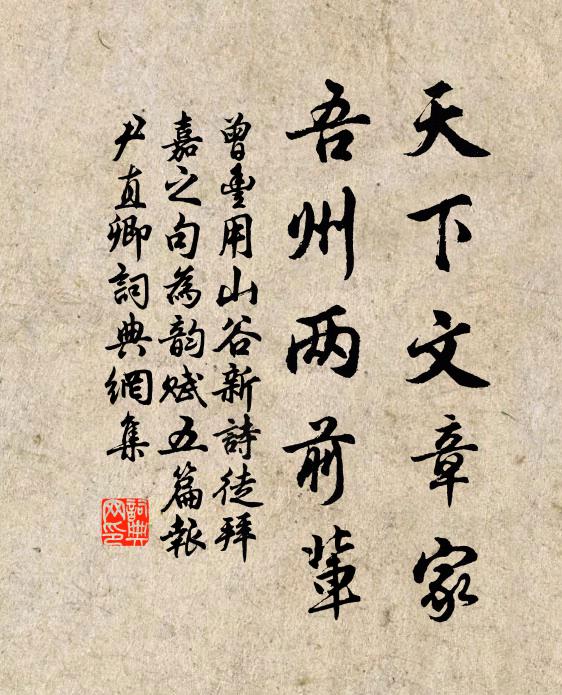 天下文章家
吾州两前輩
曾豊用山谷新詩徒拜
嘉之句為韵赋五篇報
尹直卿詞典網集
詞典
网印